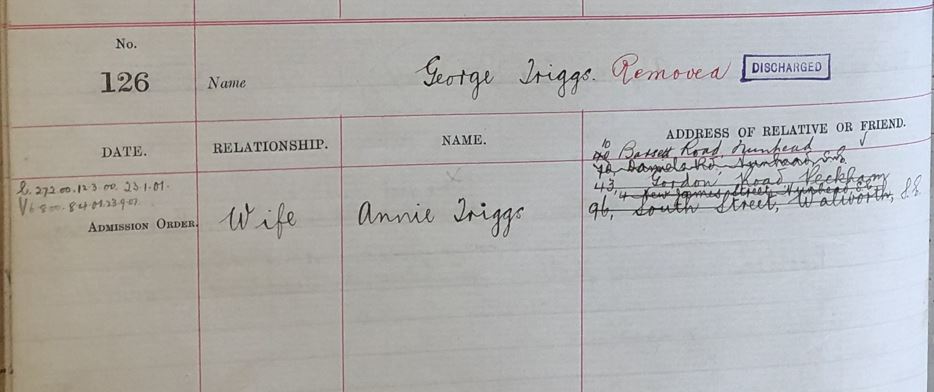 No.
126
Name
George Triggs. Removed DISCHARGED
DATE.
RELATIONSHIP.
NAME.
ADDRESS OF RELATIVE OR FRIEND.
10 Bassett Road, Nunhead
Daniels Rd, Nunhead, S.E.
43, Gordon Road Peckham
4 New James Street, Nunhead, S.E.
96, South Street, Walworth, S.E.
272.00. 12.3.00. 23.1.01.
ADMISSION ORDER.
Wife
Annie Triggs